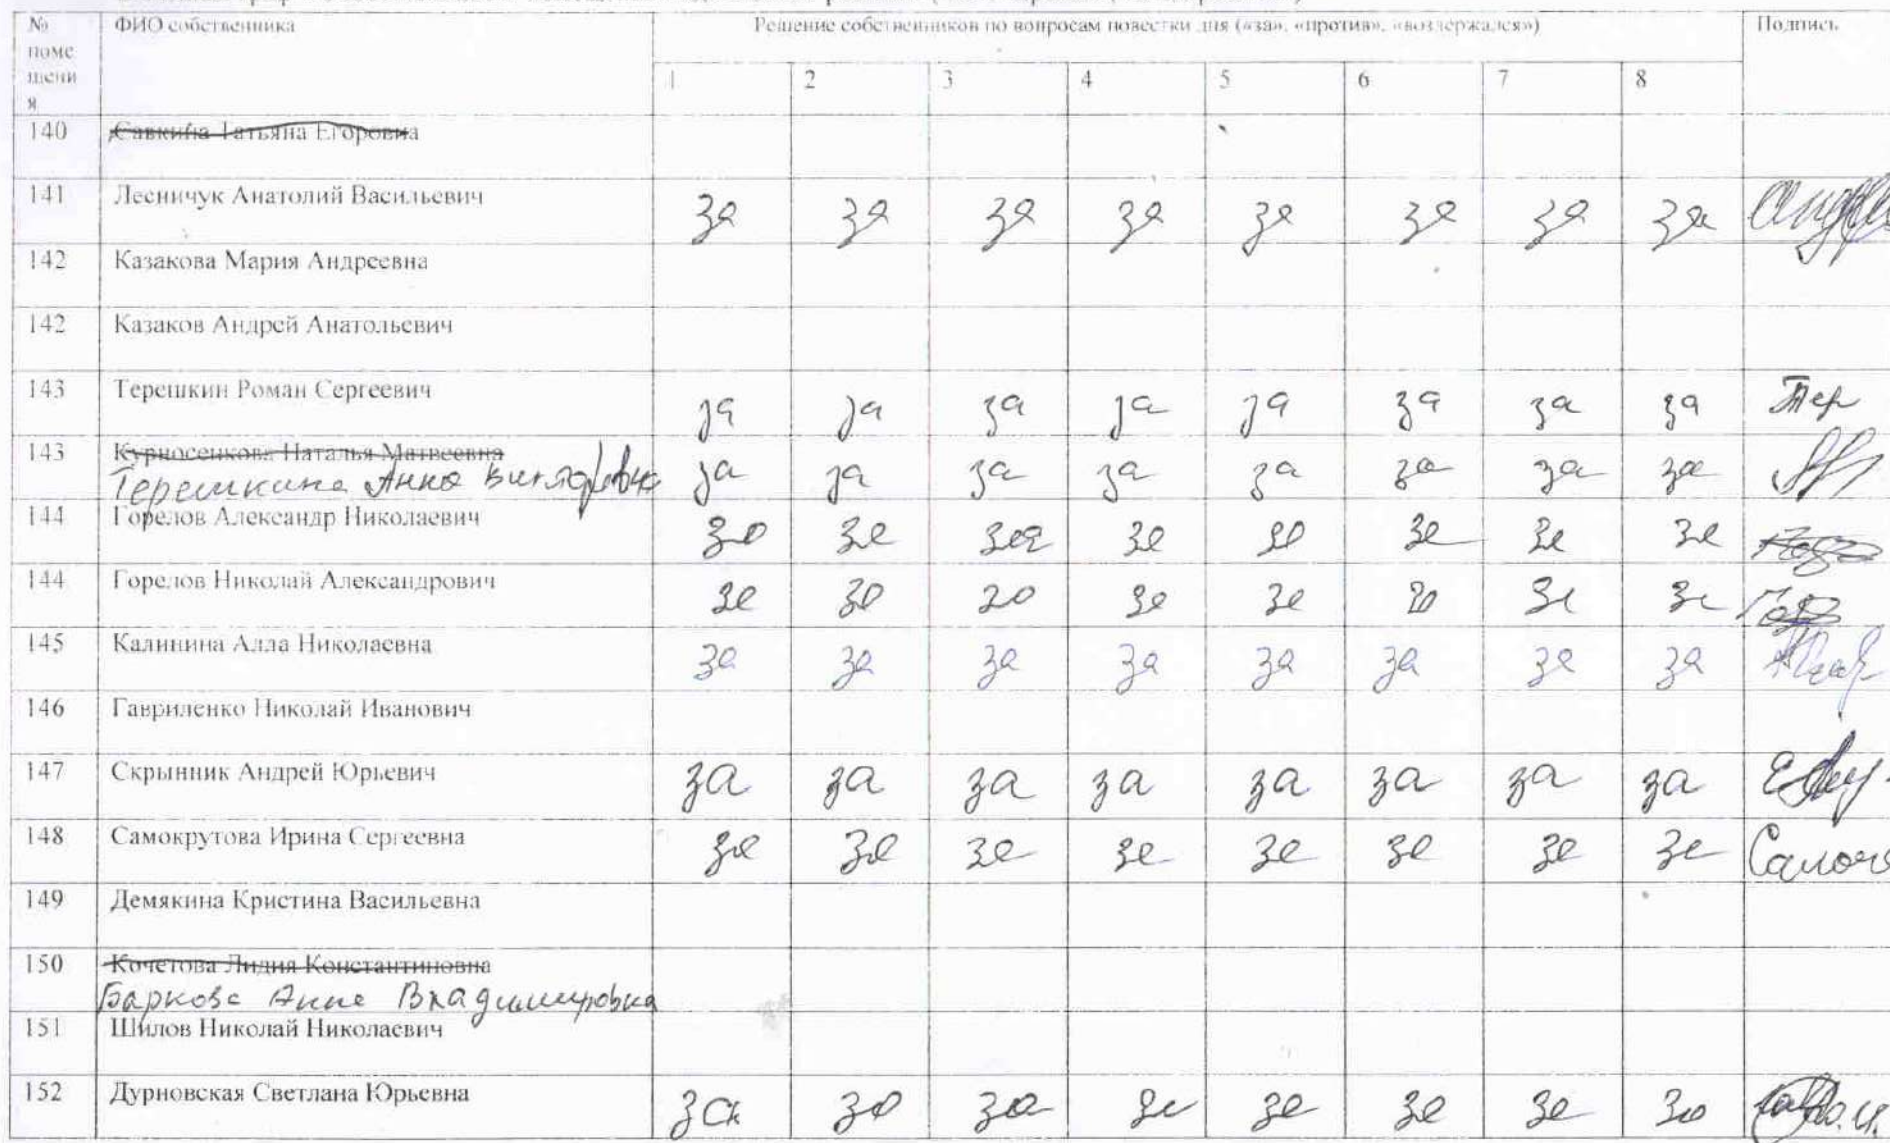 № помещения ФИО собственника Решение собственников по вопросам повестки дня («за», «против», «воздержался») Подпись
1 2 3 4 5 6 7 8
140 Савкина Татьяна Егоровна
141 Лесничук Анатолий Васильевич за за за за за за за за
142 Казакова Мария Андреевна
142 Казаков Андрей Анатольевич
143 Терешкин Роман Сергеевич за за за за за за за за Тер
143 Курносенкова Наталья Матвеевна
Терешкина Анна Викторовна за за за за за за за за
144 Горелов Александр Николаевич за за за за за за за за
144 Горелов Николай Александрович за за за за за за за за
145 Калинина Алла Николаевна за за за за за за за за
146 Гавриленко Николай Иванович
147 Скрынник Андрей Юрьевич за за за за за за за за
148 Самокрутова Ирина Сергеевна за за за за за за за за
149 Демякина Кристина Васильевна
150 Кочетова Лидия Константиновна
Баркова Анна Владимировна
151 Шилов Николай Николаевич
152 Дурновская Светлана Юрьевна за за за за за за за за